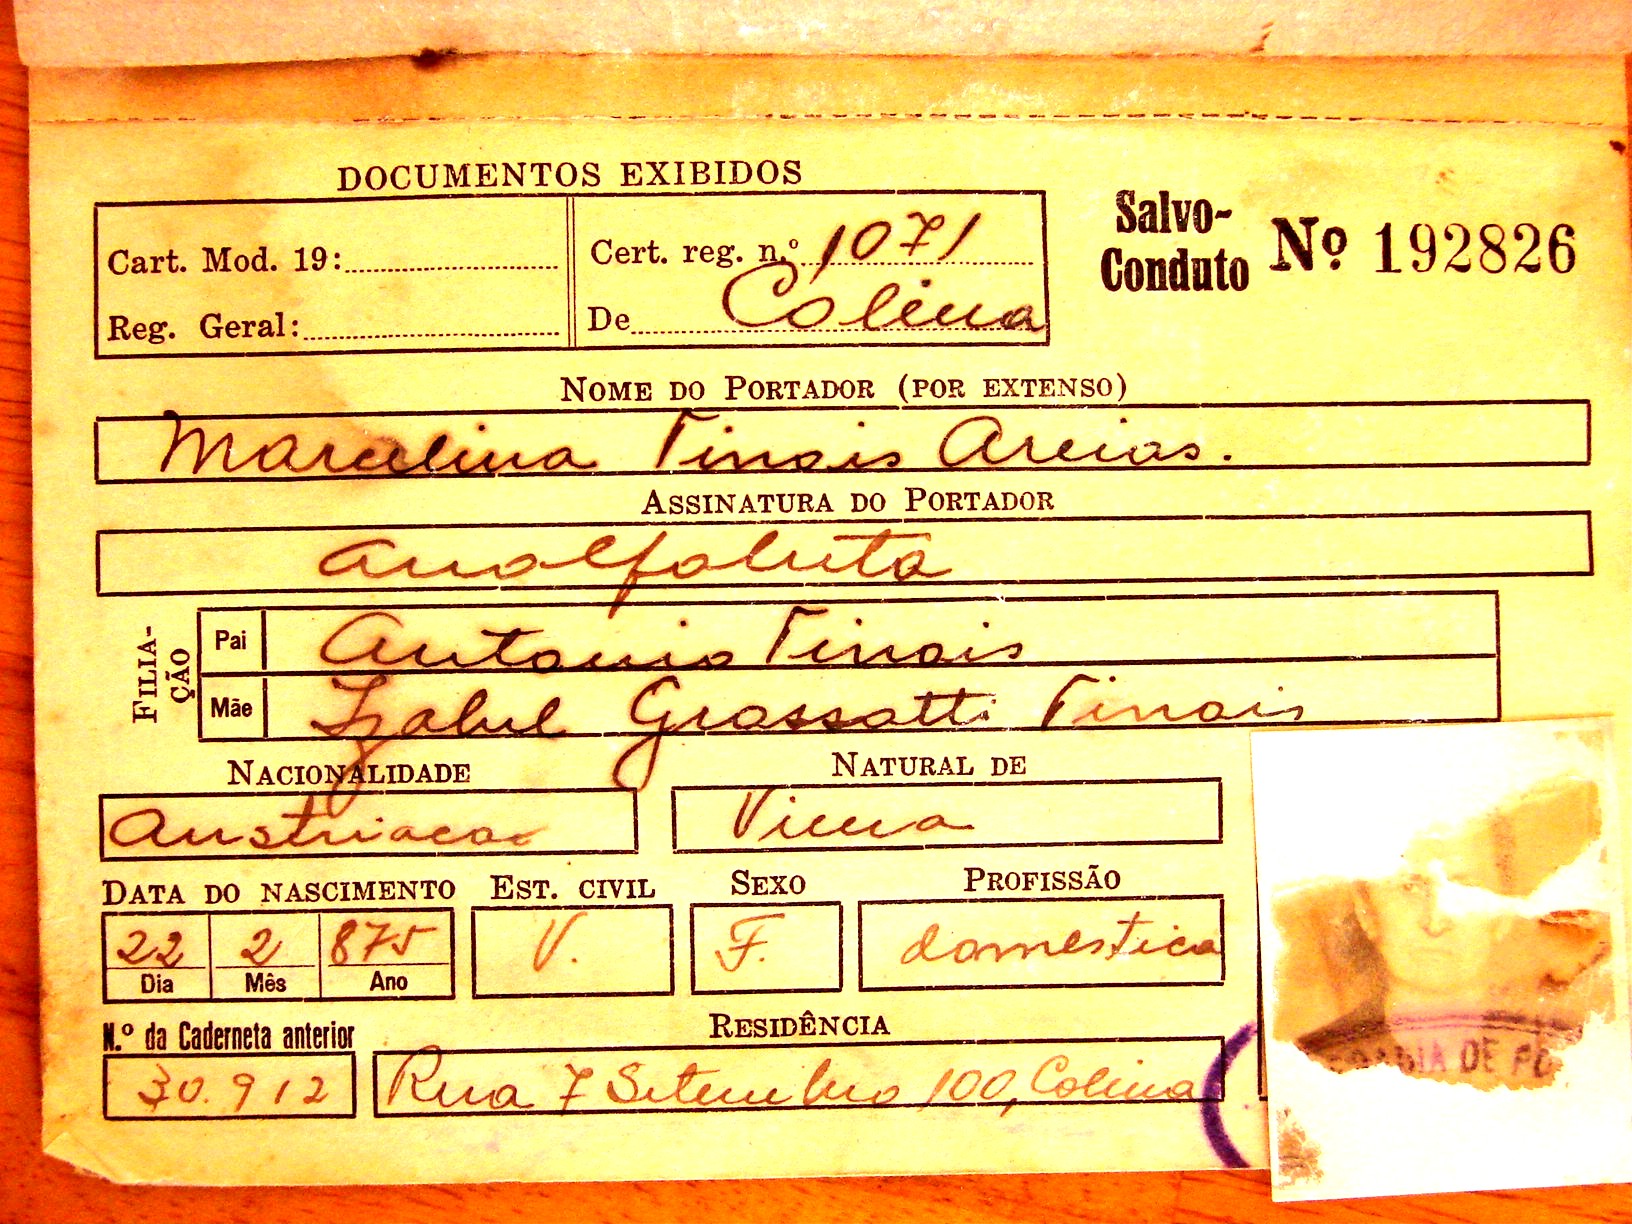 DOCUMENTOS EXIBIDOS
Cart. Mod. 19:
Cert. reg. n.º 1071
Reg. Geral:
De Colina
Salvo-
Conduto Nº 192826
NOME DO PORTADOR (POR EXTENSO)
Marcelina Tinais Areias.
ASSINATURA DO PORTADOR
Analfabeta
FILIA-
ÇÃO
Pai Antonio Tinais
Mãe Izabel Grassatti Tinais
NACIONALIDADE
Austriaca
NATURAL DE
Viena
DATA DO NASCIMENTO
22 2 875
Dia Mês Ano
EST. CIVIL
V.
SEXO
F.
PROFISSÃO
domestica
N.º da Caderneta anterior
30.912
RESIDÊNCIA
Rua 7 Setembro 100, Colina
DE